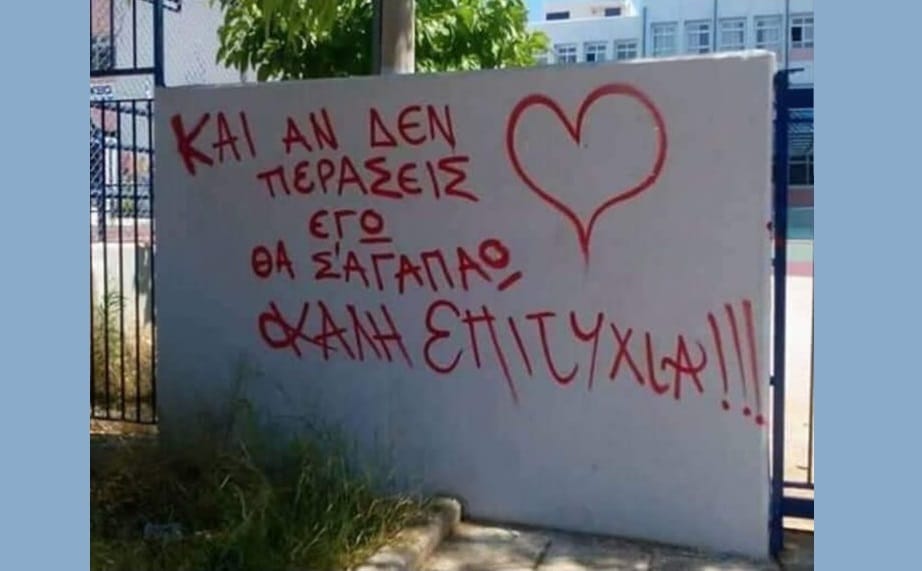 ΚΑΙ ΑΝ ΔΕΝ
ΠΕΡΑΣΕΙΣ
ΕΓΩ
ΘΑ Σ'ΑΓΑΠΑΩ
ΚΑΛΗ ΕΠΙΤΥΧΙΑ!!!